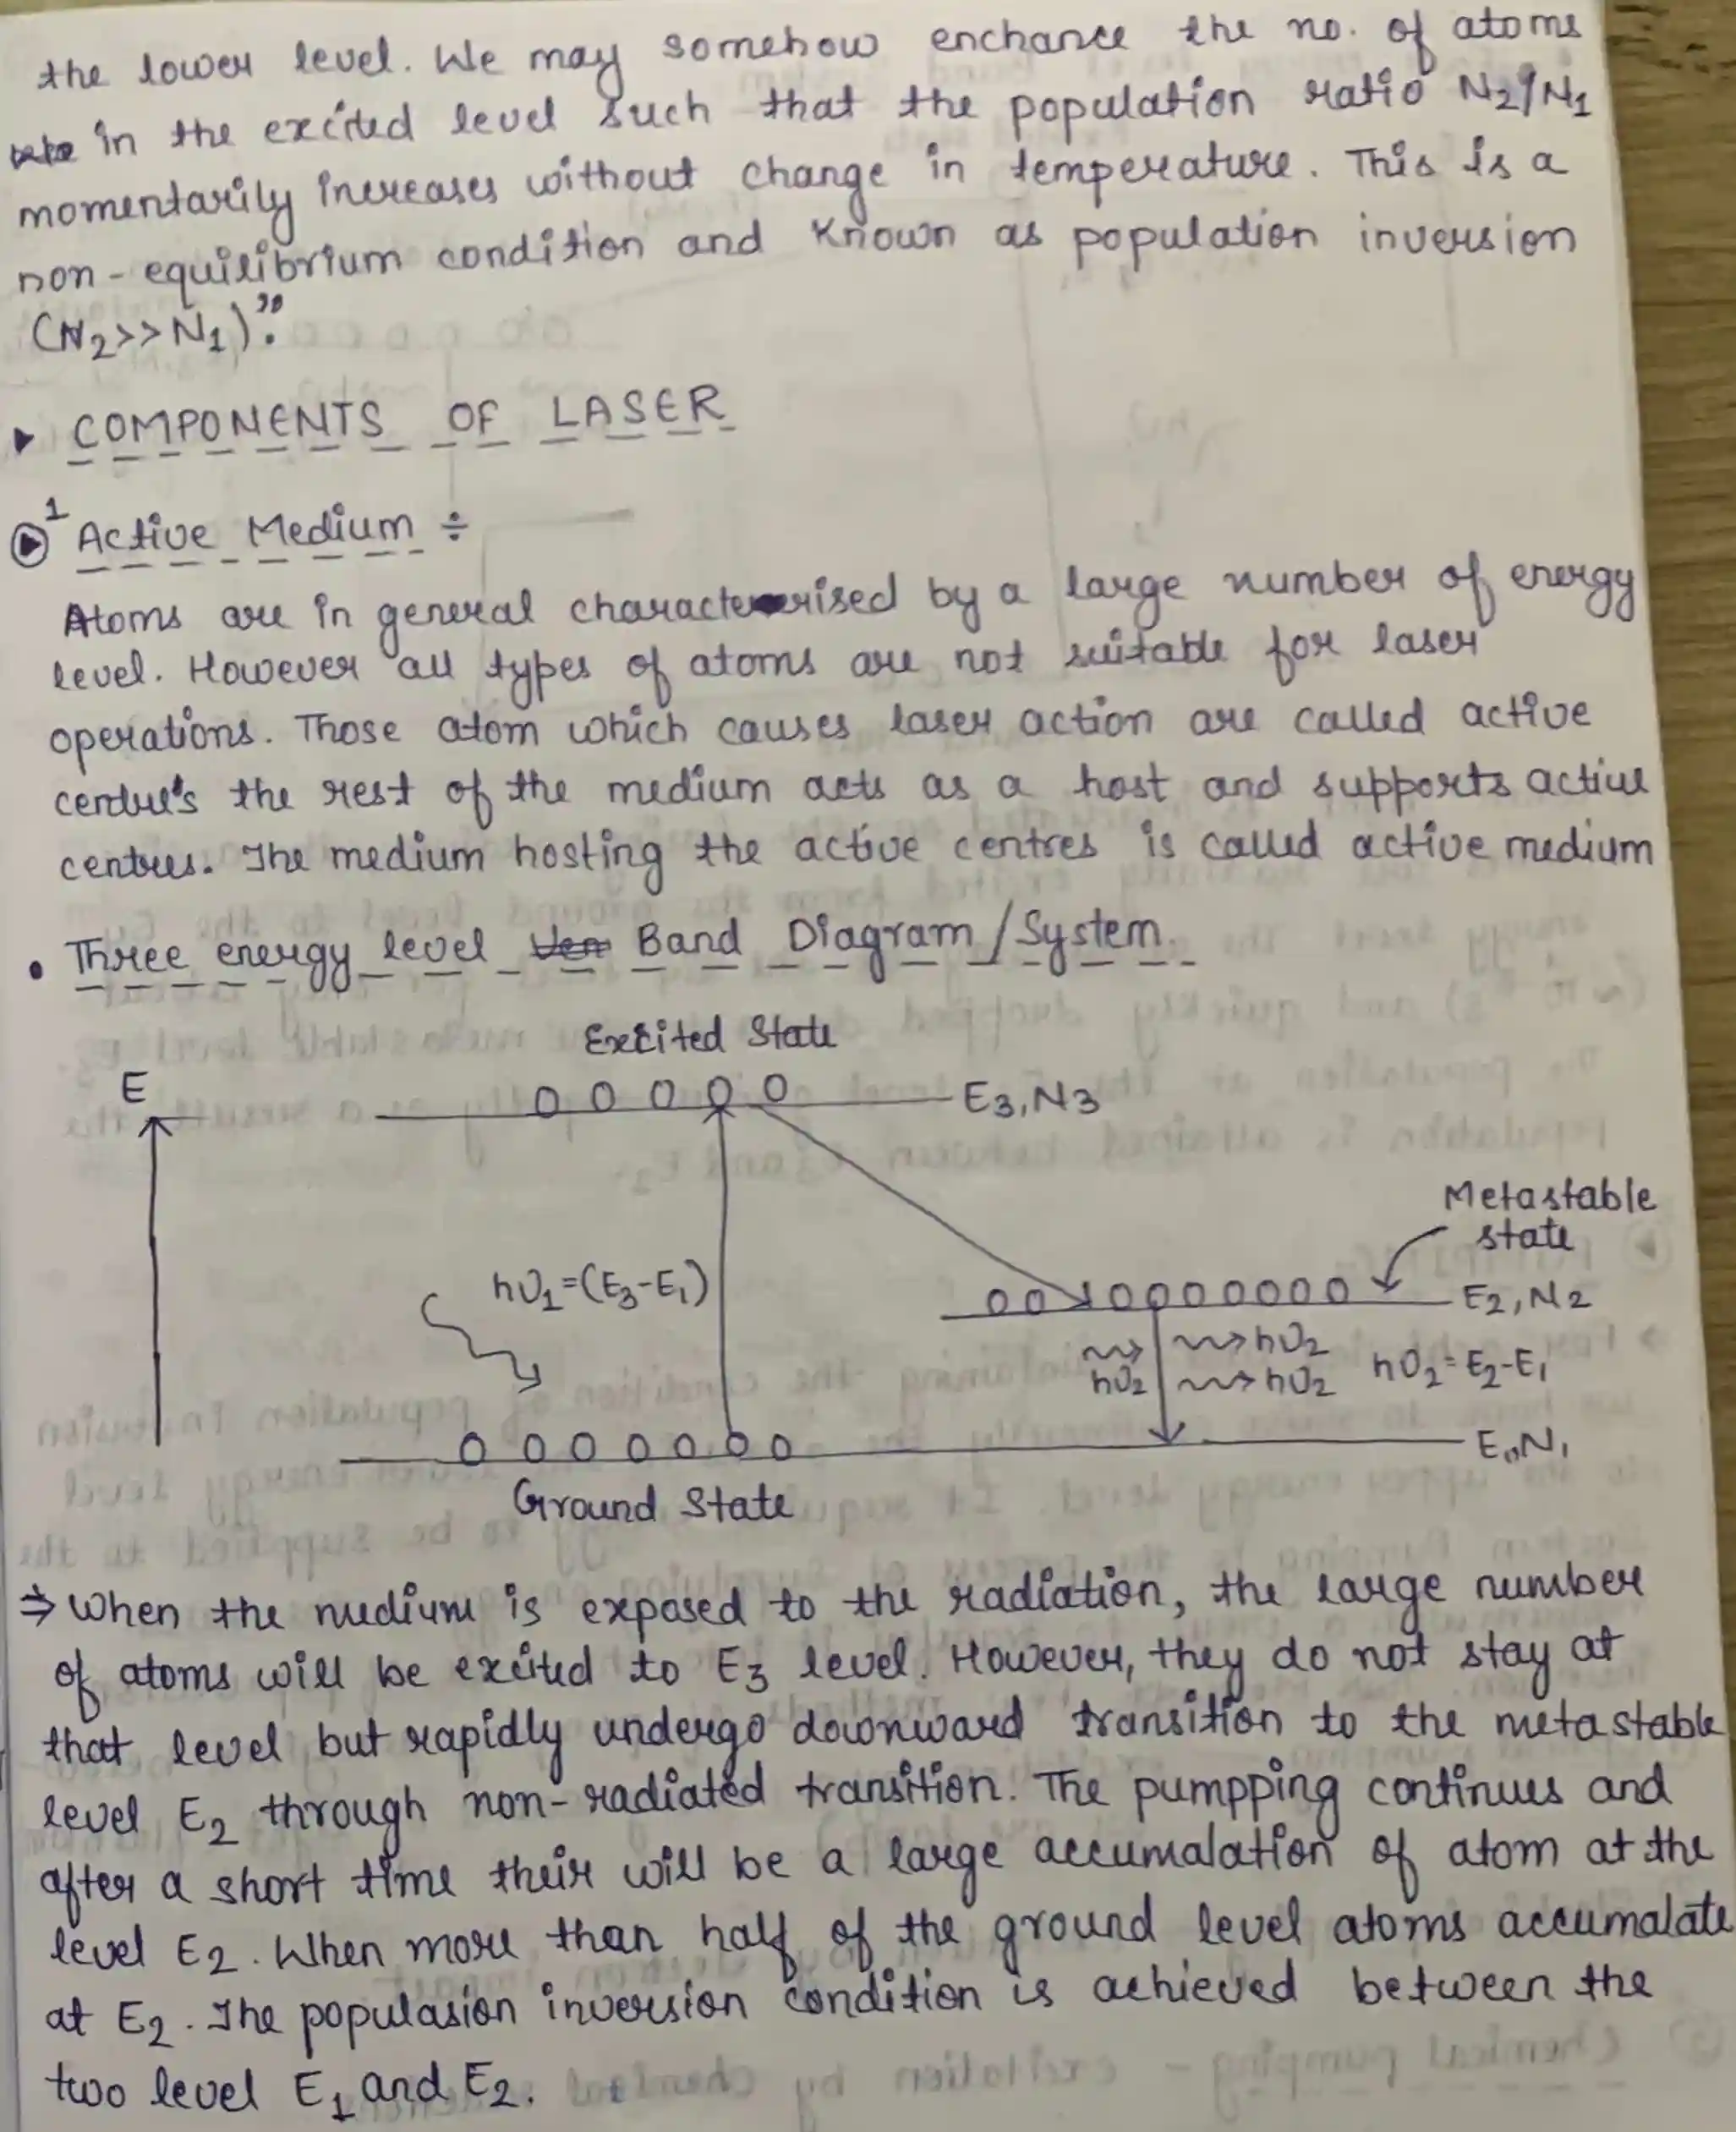 the lower level. We may somehow enchance the no. of atoms
in the excited level such that the population ratio N2/N1
momentarily increases without change in temperature. This is a
non-equilibrium condition and Known as population inversion
(N2>>N1)".
▸ COMPONENTS OF LASER
1 Active Medium ÷
Atoms are in general characterised by a large number of energy
level. However all types of atoms are not suitable for laser
operations. Those atom which causes laser action are called active
the rest of the medium acts as a host and supports active
centres. The medium hosting the active centres is called active medium
• Three energy level Band Diagram/System
Excited State
E
E3,N3
Metastable
state
hυ1=(E3-E1)
E2,N2
hυ2
hυ2 hυ2 hυ2=E2-E1
E1,N1
Ground State
⇒ When the medium is exposed to the radiation, the large number
of atoms will be excited to E3 level. However, they do not stay at
that level but rapidly undergo downward transition to the metastable
level E2 through non-radiated transition. The pumpping continues and
after a short time their will be a large accumalation of atom at the
level E2. When more than half of the ground level atoms accumalate
at E2. The populasion inversion condition is achieved between the
two level E1 and E2.